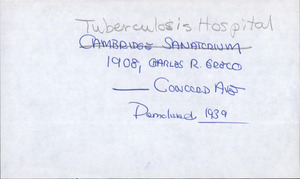 Tuberculosis Hospital
CAMBRIDGE SANATORIUM
1908, CHARLES R. GRECO
CONCORD AVE
Demolished 1939